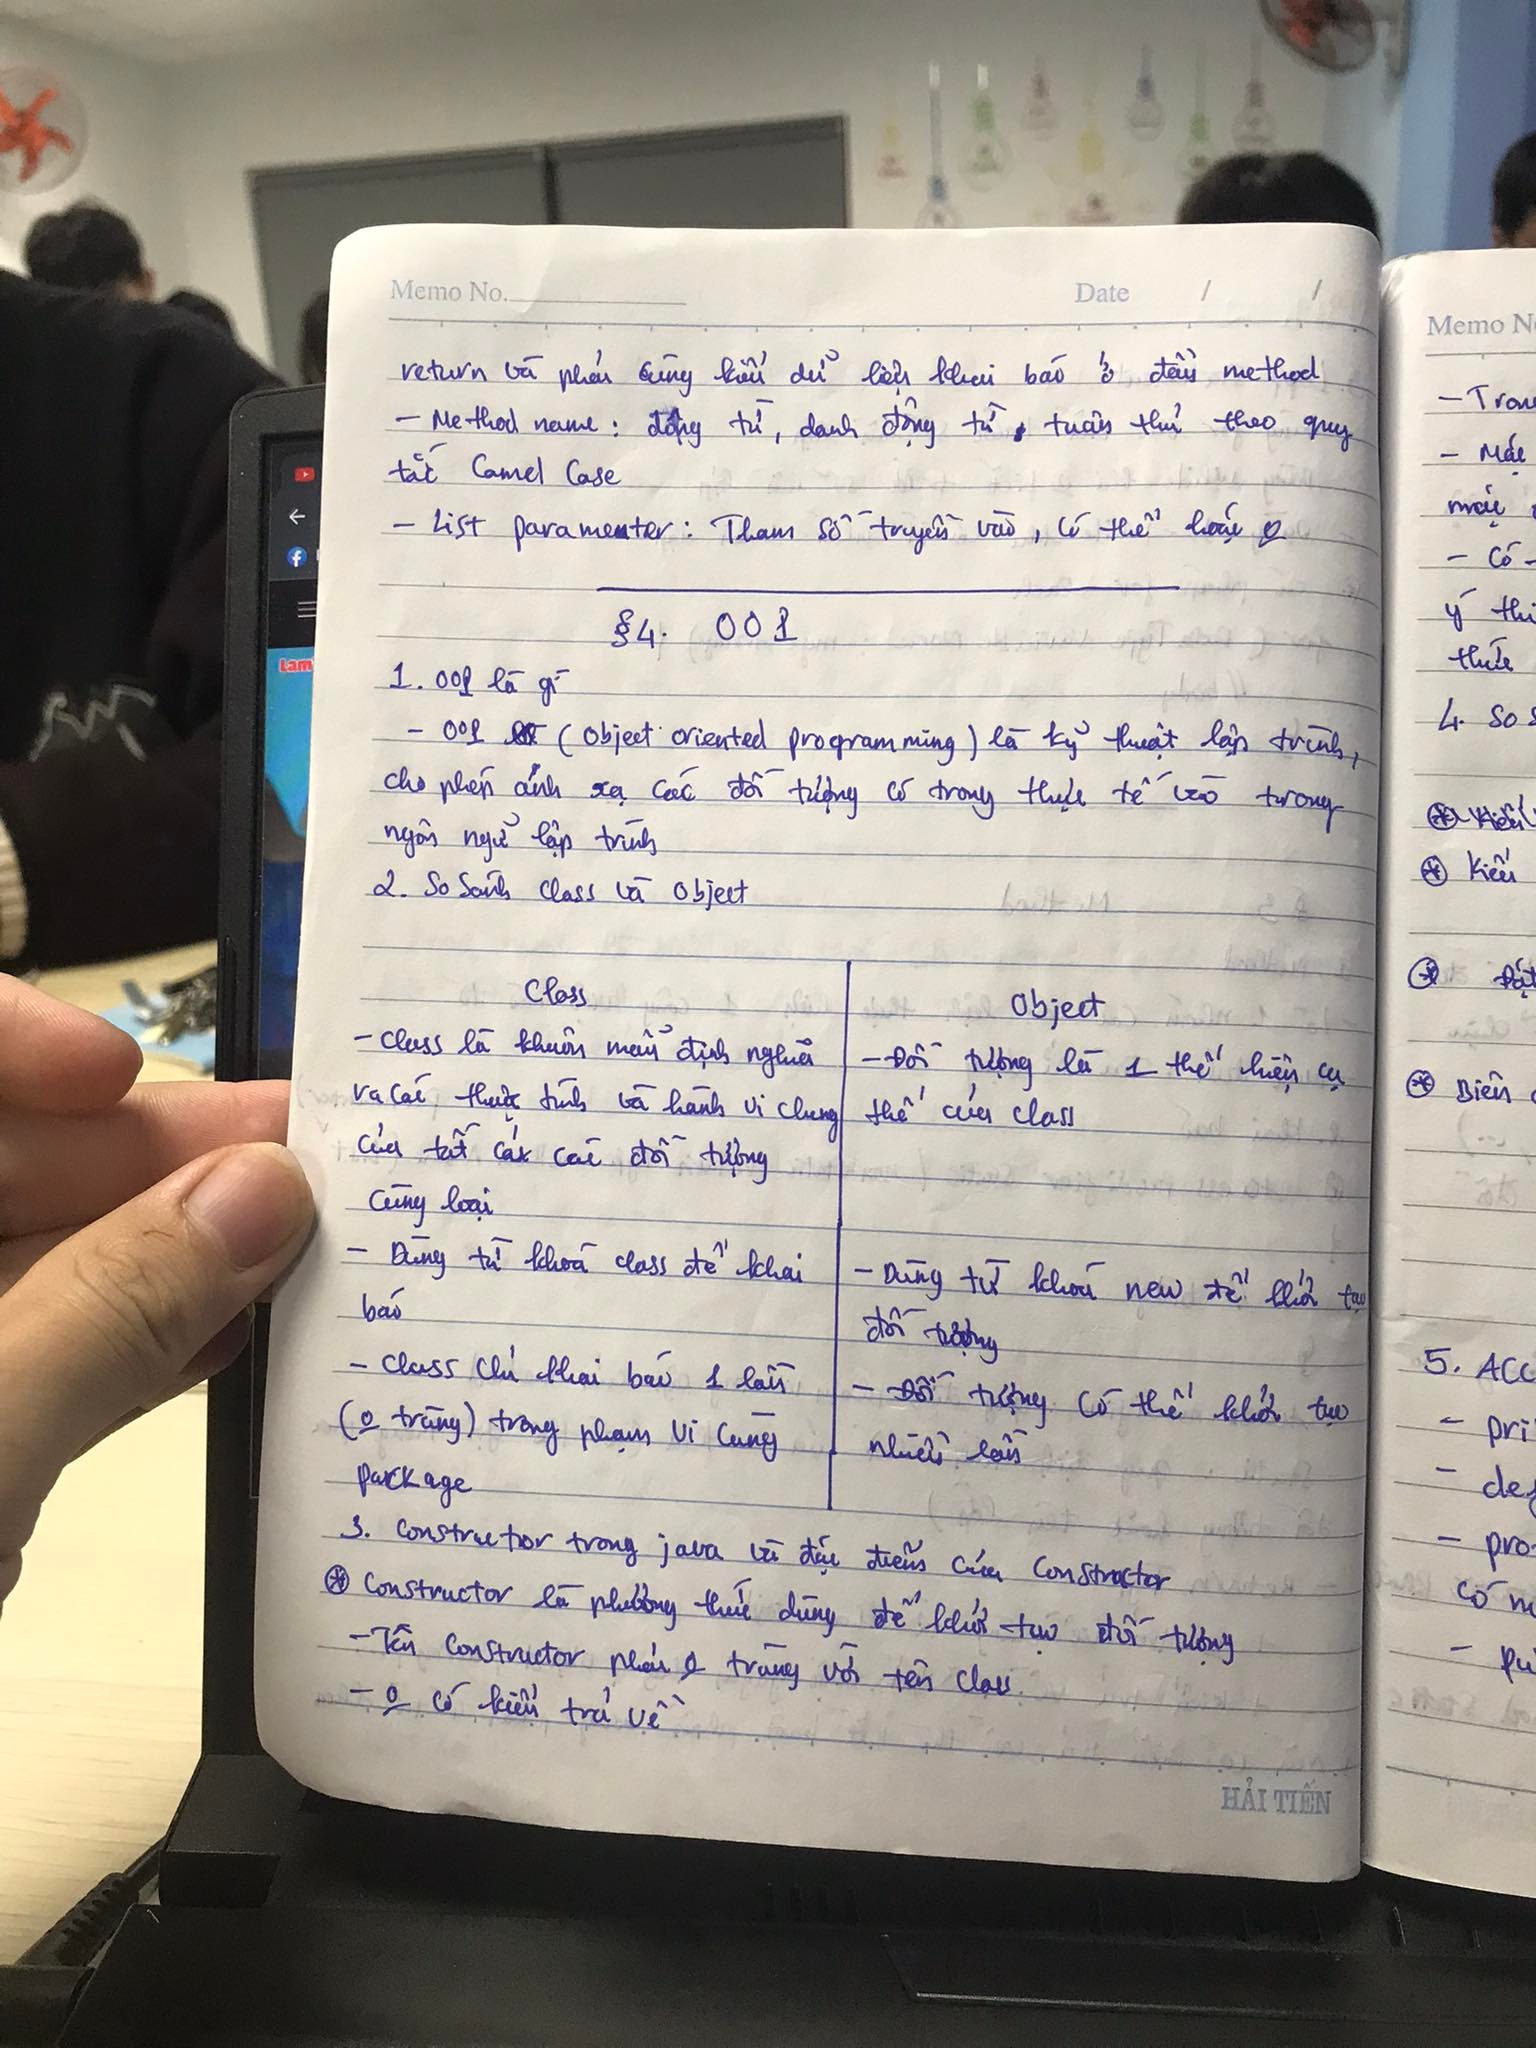 Memo No. Date / /
return và phải cùng kiểu dữ liệu khai báo ở đầu method
- Method name: động từ, danh động từ, tuân thủ theo quy
tắc Camel Case
- List paramenter: Tham số truyền vào, có thể hoặc o
§4. OOP
1. OOP là gì
- OOP (Object oriented programming) là kỹ thuật lập trình,
cho phép ánh xạ các đối tượng có trong thực tế vào trong
ngôn ngữ lập trình
2. So sánh Class và Object
Class
- Class là khuôn mẫu định nghĩa
ra các thuộc tính và hành vi chung
của tất cả các đối tượng
cùng loại
- Dùng từ khoá class để khai
báo
- Class chỉ khai báo 1 lần
(o trùng) trong phạm vi cùng
package
Object
- Đối tượng là 1 thể hiện cụ
thể của class
- Dùng từ khoá new để khởi tạo
đối tượng
- Đối tượng có thể khởi tạo
nhiều lần
3. Constructor trong java và đặc điểm của Constructor
* Constructor là phương thức dùng để khởi tạo đối tượng
- Tên Constructor phải trùng với tên class
- o có kiểu trả về
HẢI TIẾN
Memo N
- Tron
- Mục
- Có
ý thi
thức
4. So s
* Kiểu
* Biến
5. ACC
- pri
- def
- pro
có m
- pu
Lam